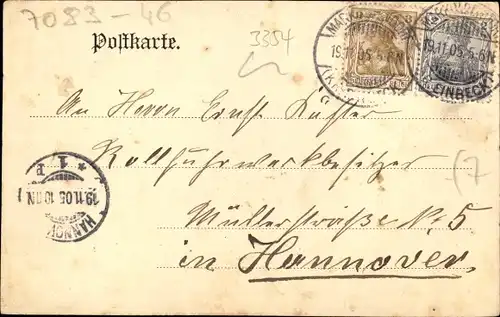 7083-46
Postkarte.
3354
19.11.05
19.11.05.5-6N
EINBECK
An Herrn Ernst Küster
Rollfuhrwerkbesitzer
(7
Müllerstraße No 5
in Hannover.
* 1. P
19.11.05. 10-11N
HANNOV